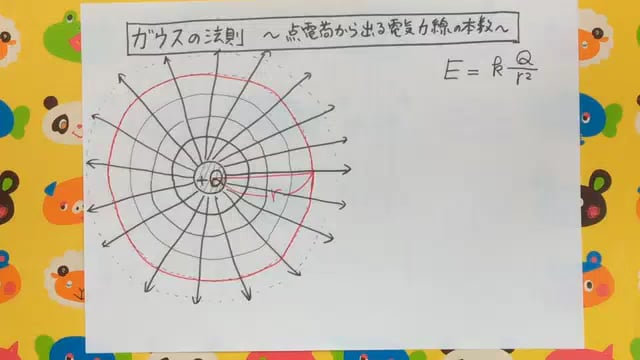 ガウスの法則 ～点電荷から出る電気力線の本数～
E = k Q/r²
+Q
r